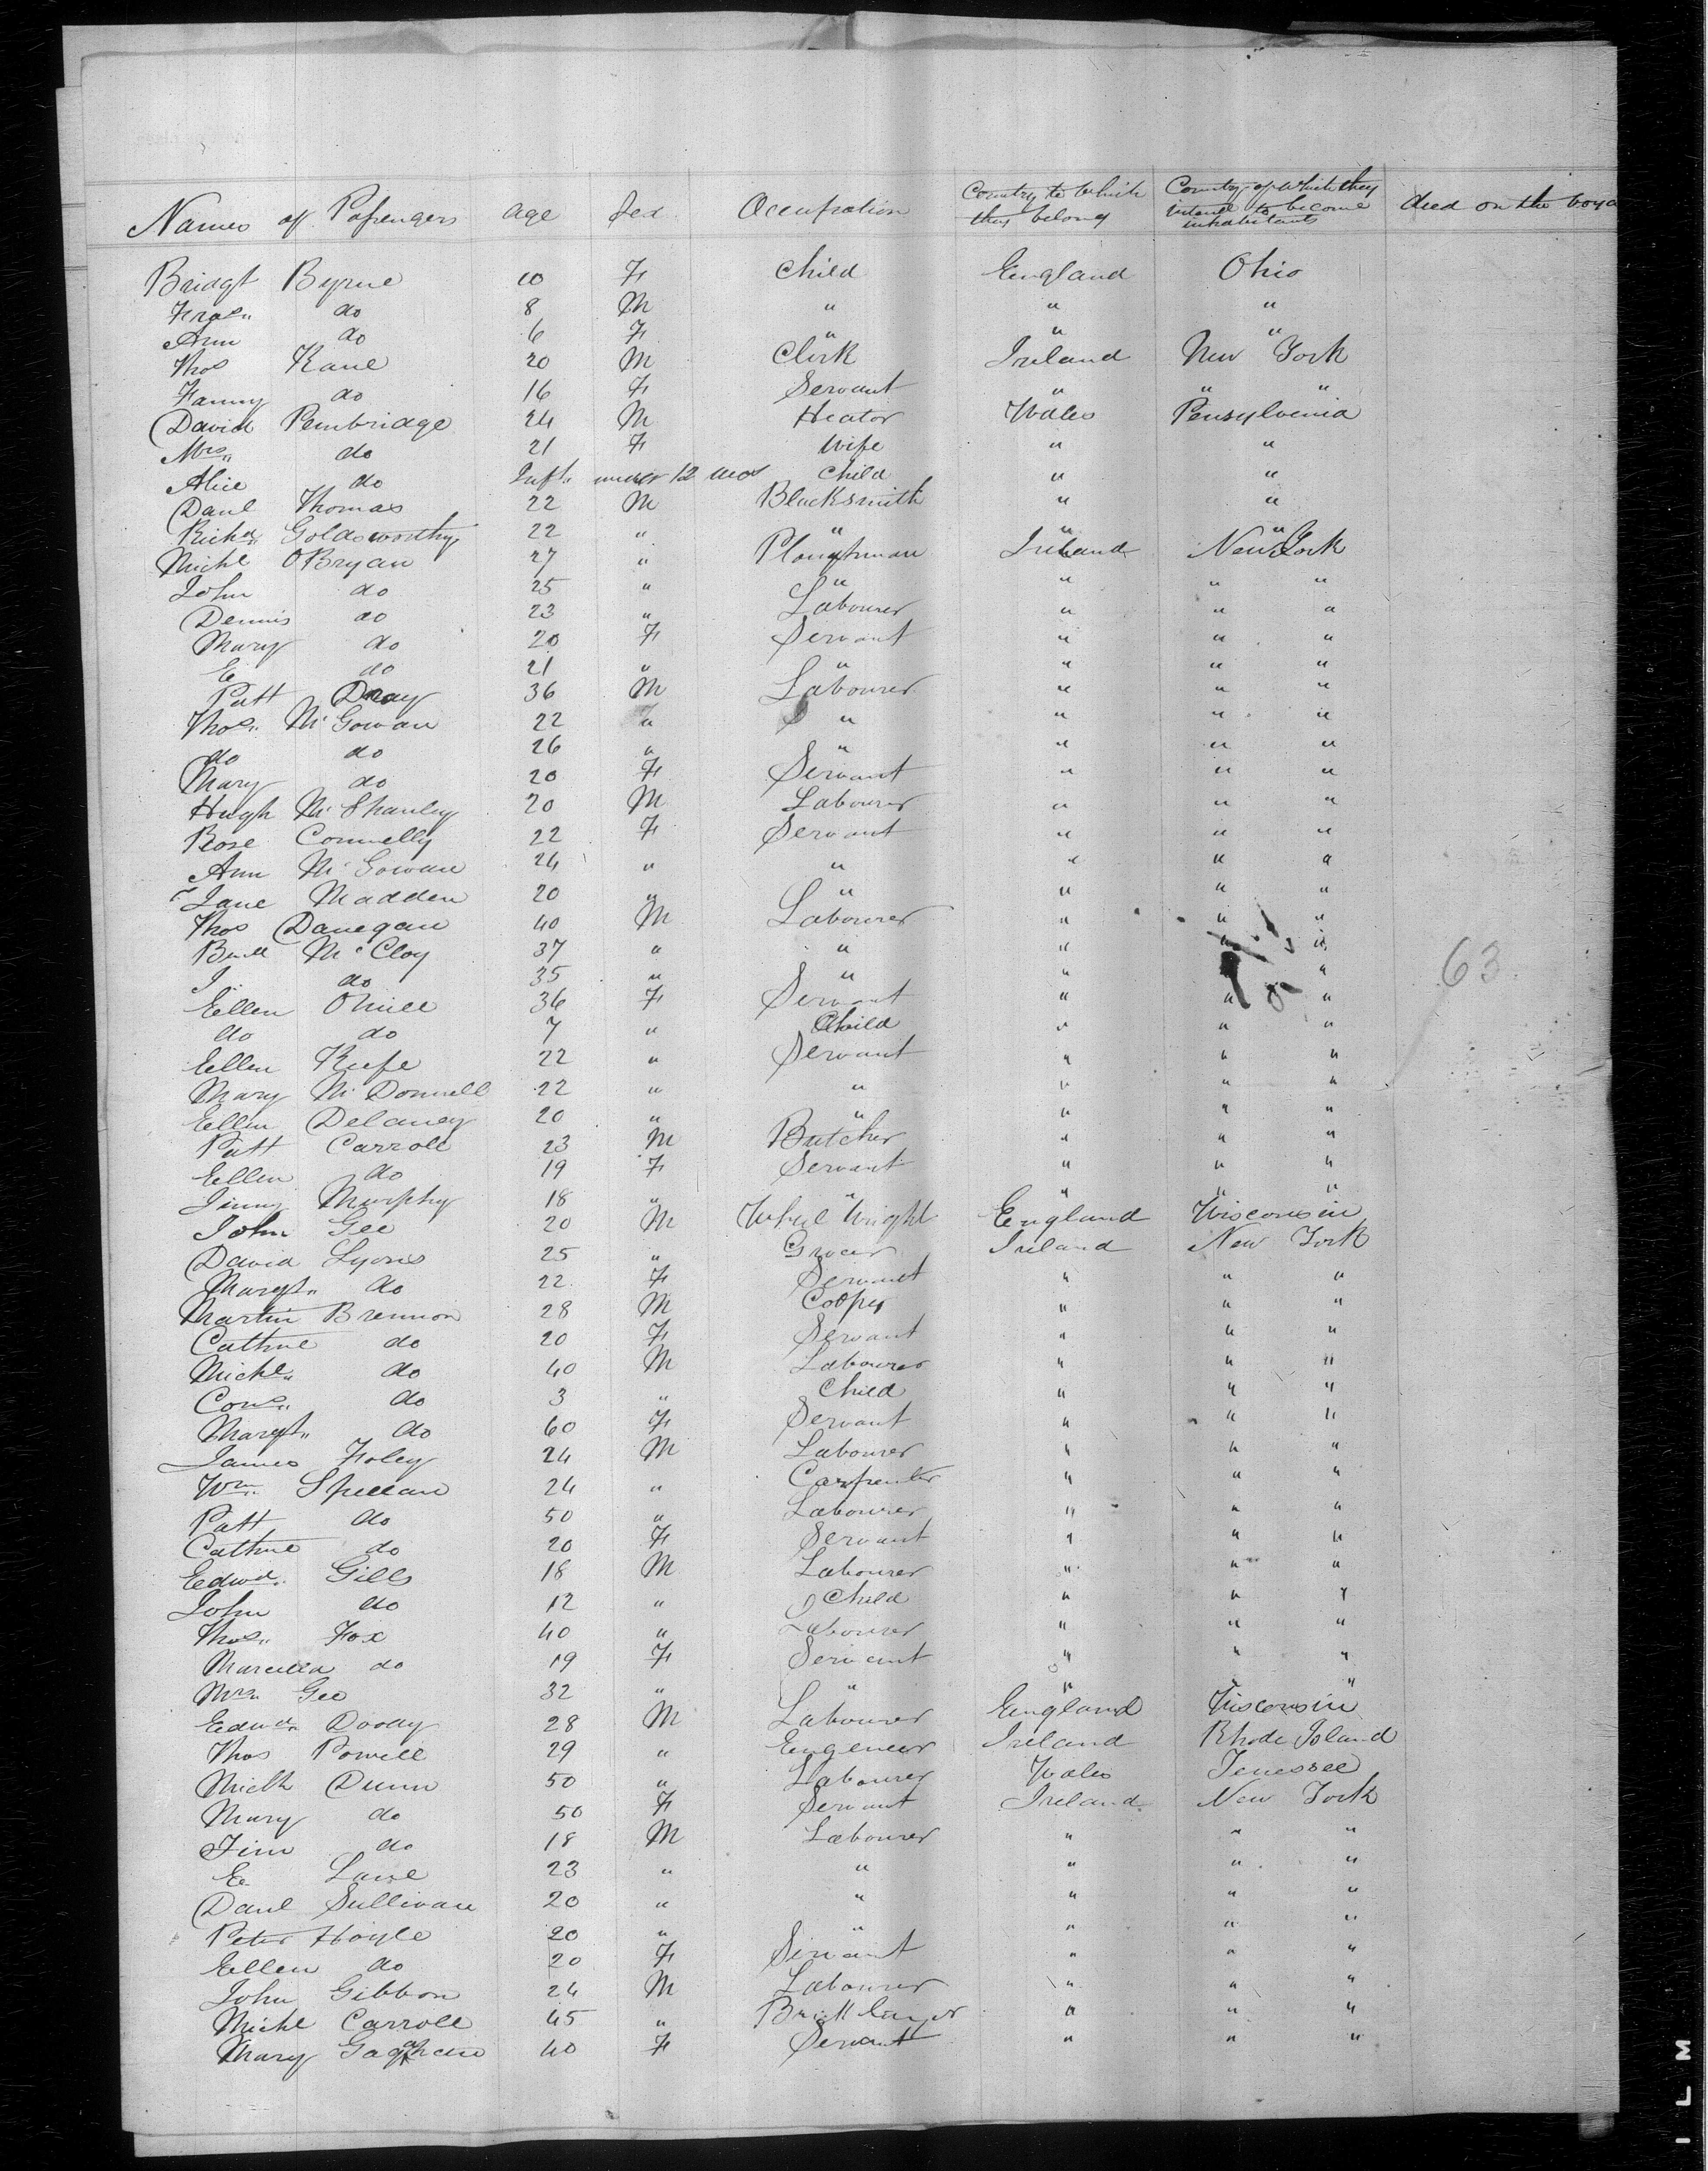 Names of Passengers age Sex Occupation Country to which they belong Country of which they intend to become inhabitants died on the voya
Bridgt Byrne 10 F Child England Ohio
Fras" do 8 M " " "
Ann do 6 F " " "
Thos Kane 20 M Clerk Ireland New York
Fanny do 16 F Servant " " "
David Pembridge 24 M Heator Wales Pensylvenia
Mrs" do 21 F Wife " "
Alice do Inft" under 12 mos Child " "
Danl Thomas 22 M Blacksmith " "
Richd" Goldsworthy 22 " " " "
Michl OBryan 27 " Ploughman Ireland New York
John do 25 " " " " "
Dennis do 23 " Labourer " " "
Mary do 20 F Servant " " "
E do 21 " " " " "
Patt Dray 36 M Labourer " " "
Thos" McGowan 22 " " " " "
do do 26 " " " " "
Mary do 20 F Servant " " "
Hugh McShanley 20 M Labourer " " "
Rose Connelly 22 F Servant " " "
Ann McGowan 24 " " " " "
Jane Madden 20 " " " " "
Thos Danegan 40 M Labourer " " "
McCloy 37 " " " " "
J" do 35 " " " " "
63
Ellen ONiell 36 F Servant " " "
do do 7 " Child " " "
Ellen Kiefe 22 " Servant " " "
Mary McDonnell 22 " " " " "
Ellen Delaney 20 " " " " "
Patt Carroll 23 M Butcher " " "
Ellen do 19 F Servant " " "
Jinny Murphy 18 " " " " "
John Gee 20 M Wheel Wright England Wisconsin
David Lyons 25 " Grocer Ireland New York
Margt" do 22 F Servant " " "
Martin Brennon 28 M Cooper " " "
Cathne do 20 F Servant " " "
Michl" do 40 M Labourer " " "
Cons" do 3 " Child " " "
Margt" do 60 F Servant " " "
James Foley 24 M Labourer " " "
Wm" Spellan 24 " Carpenter " " "
Patt do 50 " Labourer " " "
Cathne do 20 F Servant " " "
Edwd" Gills 18 M Labourer " " "
John do 12 " Child " " "
Thos" Fox 40 " Labourer " " "
Marcella do 19 F Servant " " "
Mrs" Gee 32 " " " " "
Edwd" Dooay 28 M Labourer England Wisconsin
Thos Powell 29 " Engeneer Ireland Rhode Island
Michl Dunn 50 " Labourer Wales Tenessee
Mary do 50 F Servant Ireland New York
Tim do 18 M Labourer " " "
E Lawl 23 " " " " "
Danl Sullivan 20 " " " " "
Peter Hoyle 20 " " " " "
Ellen do 20 F Servant " " "
John Gibbon 24 M Labourer " " "
Michl Carroll 45 " Brick layer " " "
Mary Gaghan 40 F Servant " " "
ILM